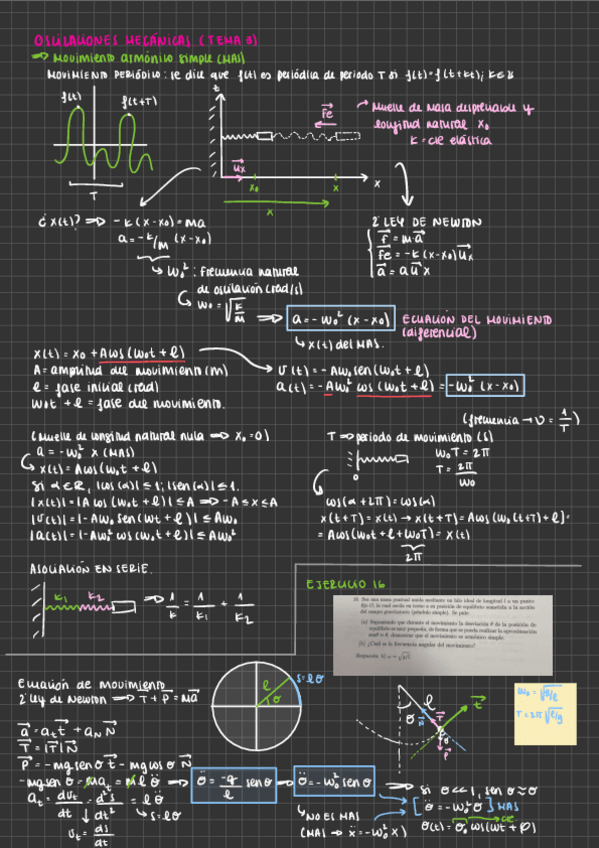 OSCILACIONES MECÁNICAS (TEMA 3)
⇒ Movimiento armónico simple (MAS)
MOVIMIENTO PERIÓDICO: se dice que f(t) es periódica de periodo T si f(t)=f(t+kt); k∈ℤ
f(t)
f(t+T)
T
t
Fe
ux
x0
x
x
x
Muelle de masa despreciable y
longitud natural x0
K = cte elástica
¿x(t)? ⇒ -k(x-x0)=ma
a=-k/m (x-x0)
w0²: Frecuencia natural
de oscilación (rad/s)
w0=√(k/m) ⇒ a=-w0²(x-x0)
ECUACIÓN DEL MOVIMIENTO
(diferencial)
↳ x(t) del MAS.
2ª LEY DE NEWTON
F=ma
Fe=-k(x-x0)ux
a=aux
x(t)=x0+Acos(w0t+ℓ)
A=amplitud del movimiento (m)
ℓ=fase inicial (rad)
w0t+ℓ=fase del movimiento.
v(t)=-Aw0sen(w0t+ℓ)
a(t)=-Aw0²cos(w0t+ℓ)=-w0²(x-x0)
(frecuencia → υ=1/T)
(muelle de longitud natural nula ⇒ x0=0)
a=-w0²x (MAS)
↳ x(t)=Acos(w0t+ℓ)
Si α∈ℝ, |cos(α)|≤1; |sen(α)|≤1.
|x(t)|=|Acos(w0t+ℓ)|≤A ⇒ -A≤x≤A
|v(t)|=|-Aw0sen(wt+ℓ)|≤Aw0
|a(t)|=|-Aw0²cos(w0t+ℓ)|≤Aw0²
T ⇒ periodo de movimiento (s)
0
w0T=2π
T=2π/w0
cos(α+2π)=cos(α)
x(t+T)=x(t) → x(t+T)=Acos(w0(t+T)+ℓ)=
=Acos(w0t+ℓ+w0T)=x(t)
2π
ASOCIACIÓN EN SERIE.
k1 k2
⇒ 1/k = 1/k1 + 1/k2
EJERCICIO 16
16. Sea una masa puntual unida mediante un hilo ideal de longitud l a un punto
fijo O, la cual oscila en torno a su posición de equilibrio sometida a la acción
del campo gravitatorio (péndulo simple). Se pide:
(a) Suponiendo que durante el movimiento la desviación θ de la posición de
equilibrio es muy pequeña, de forma que se pueda realizar la aproximación
senθ ≈ θ, demostrar que el movimiento es armónico simple.
(b) ¿Cuál es la frecuencia angular del movimiento?
Respuesta: b) ω = √g/l.
Ecuación de movimiento
2ª Ley de Newton → T+P=ma
a=at t+aN N
T=|T|N
P=-mg senθ t - mg cosθ N
-mg senθ = mat = mℓθ̈
at=dvt/dt=d²s/dt²=ℓθ̈
↳ s=ℓθ
vt=ds/dt
ℓ
θ
s=ℓθ
θ̈=-g/ℓ senθ → θ̈=-w0²senθ
↳ NO ES MAS
(MAS ⇒ ẍ=-w0²x)
θ
ℓ
N
T
t
θ
P
w0=√(g/ℓ)
T=2π√(ℓ/g)
⇒ Si θ<<1, senθ≈θ
[θ̈=-w0²θ] MAS
cte
θ(t)=θ0cos(wt+φ)